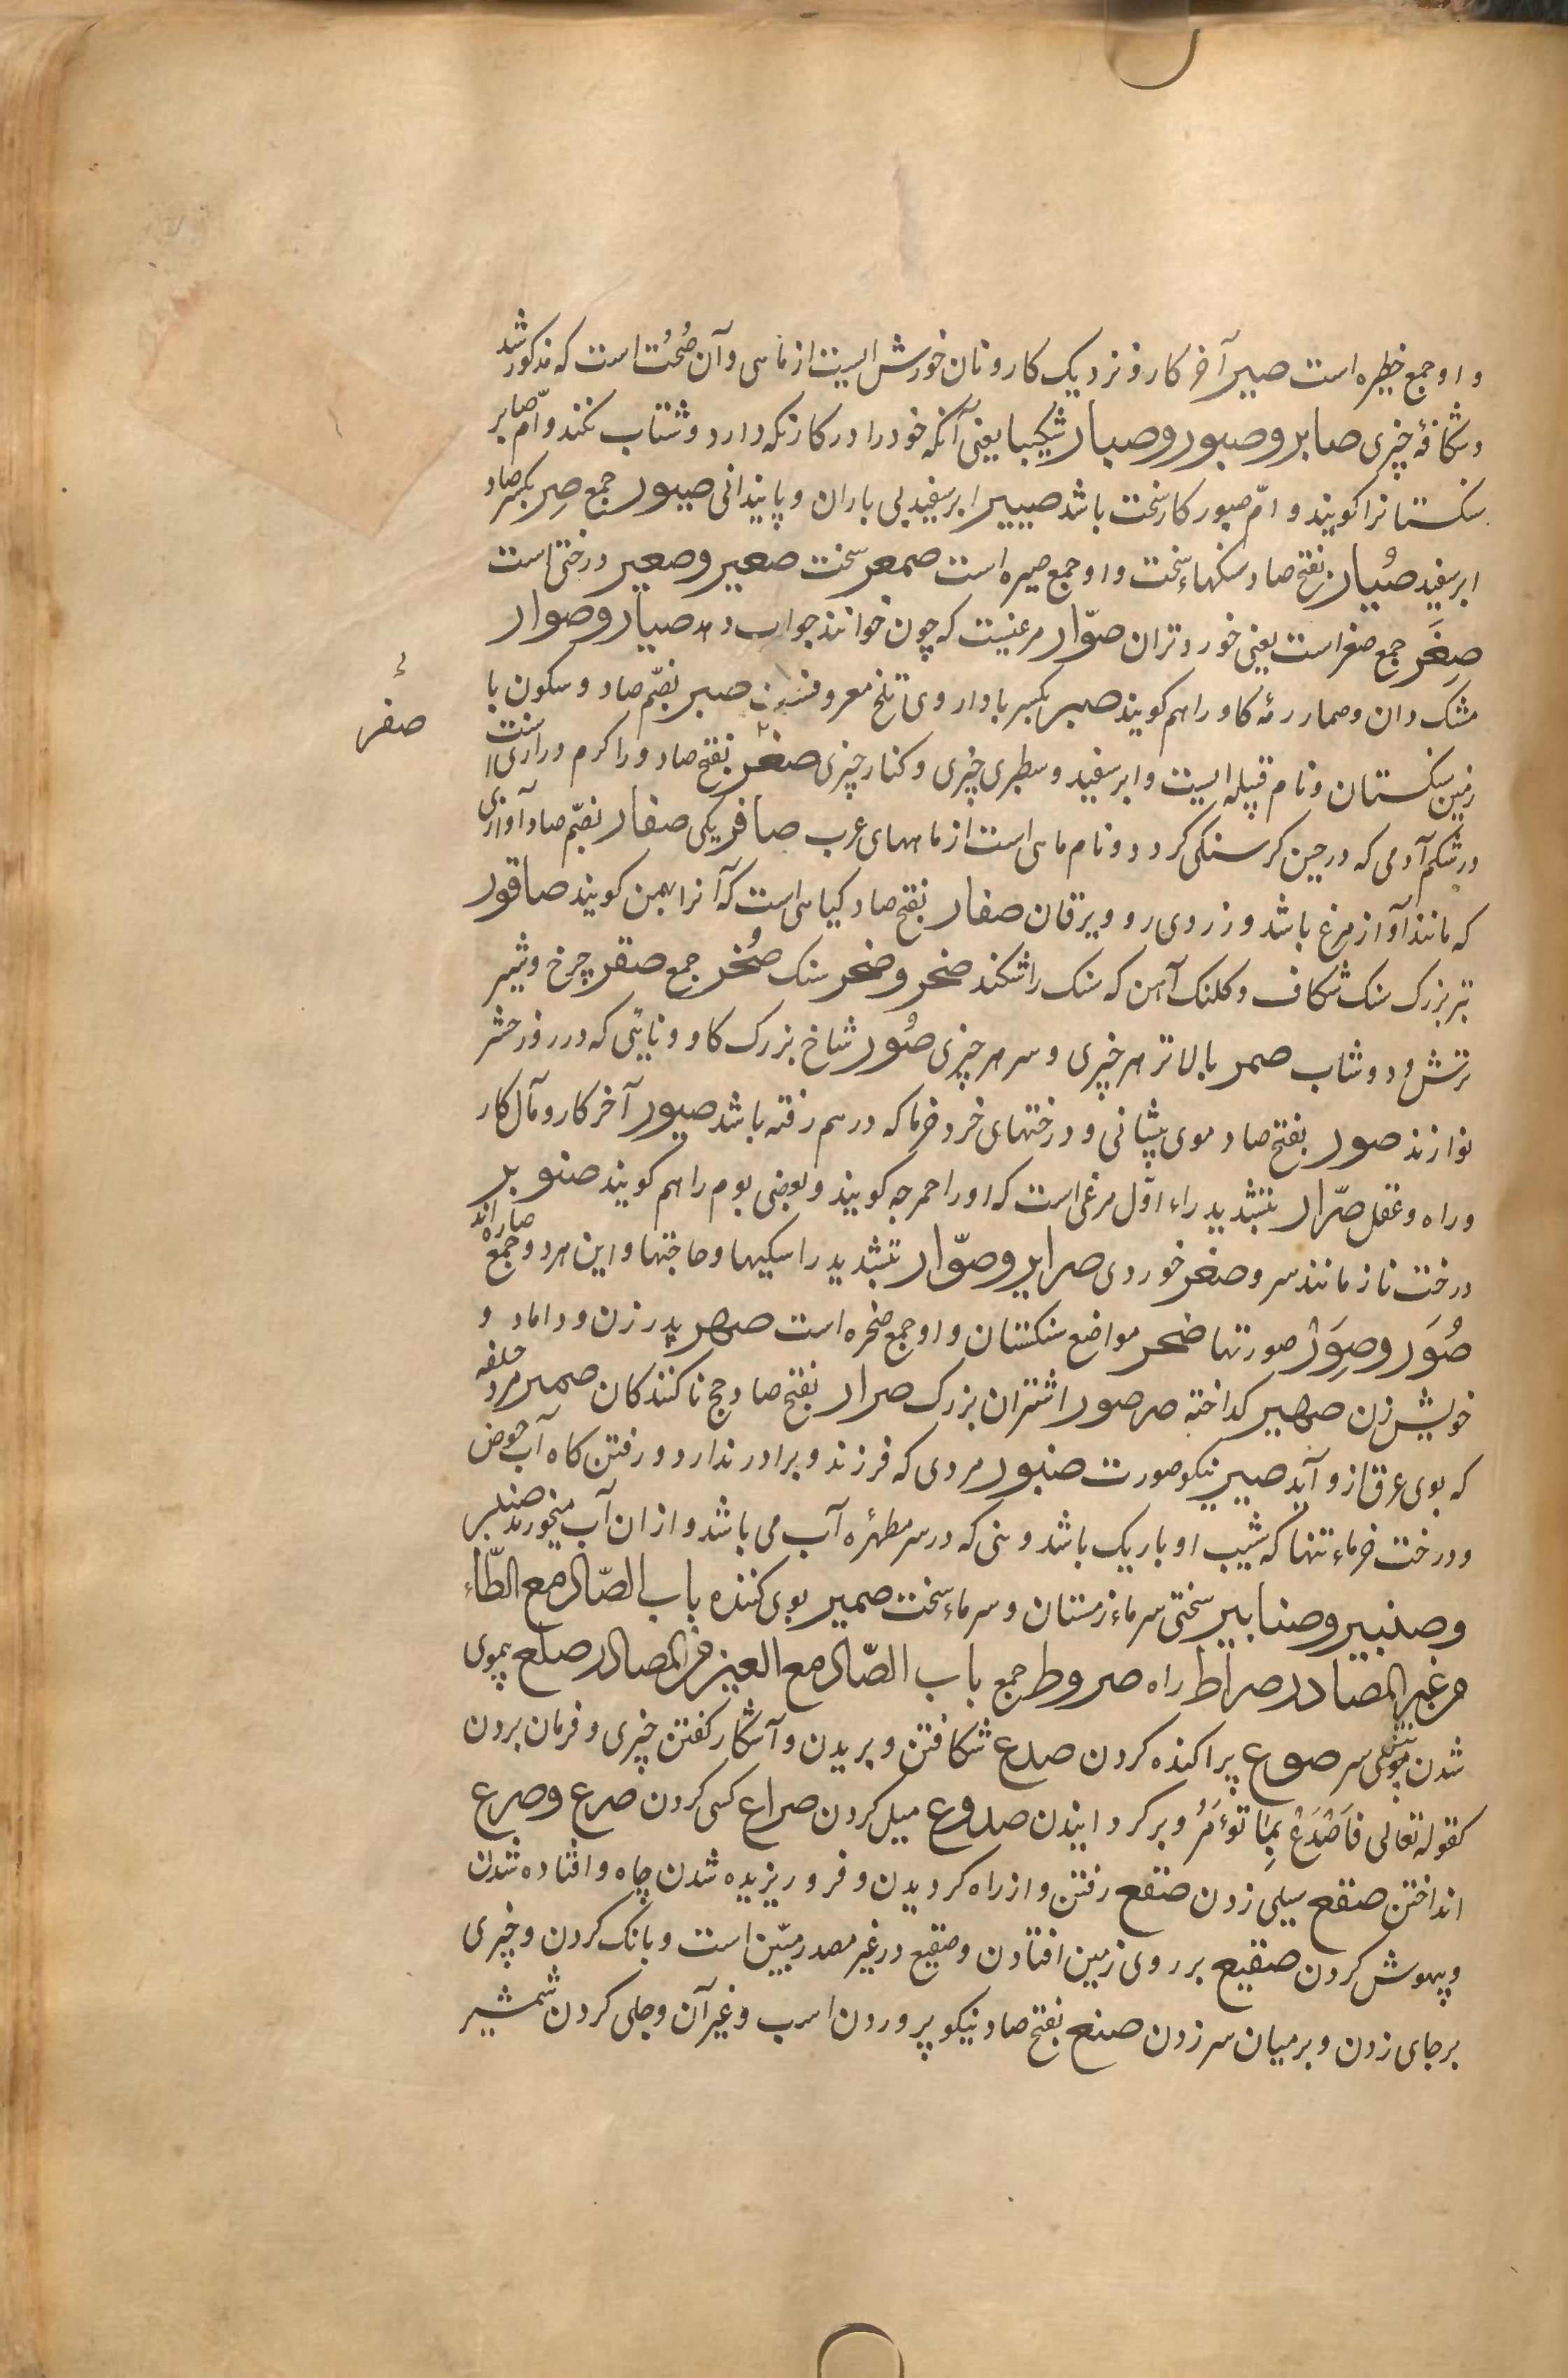 و او جمع خطیره است صیر آخر کار و نزدیک کار و نان خورش الیست از ماهی و آن صُحنُت است که مذکور شد
و شکافهٔ چیزی صابر و صبور و صبار شکیبا یعنی آنکه خود را در کار نکه دارد و شتاب نکند و امّ صابر
سنکستانرا کویند و امّ صبور کار سخت باشد صبیر ابر سفید بی باران و پایندانی صبور جمع صِر بکسر صاد
ابر سفید صُبار بفتح صاد سنکهاء سخت و او جمع صبره است صمعر سخت صغیر و صعیر درختی است
صِغَر جمع صغر است یعنی خوردتران صوّار مرغیست که چون خوانند جواب دهد صیار و صوار
مشک دان و صمار رمهٔ کاو را هم کویند صبر بکسر با داروی تلخ معروف صبر بضّم صاد و سکون با
زمین سنکستان و نام قبیله ایست و ابر سفید و سطبری چیزی و کنار چیزی صغر بفتح صاد و را کرم درازی است
صفر
در شکم آدمی که در حین کرسنکی کردد و نام ماهی است از ماههای عرب صافر یکی صفار بضّم صاد آوازی
که مانند آواز مرغ باشد و زردی رو و یرقان صفار بفتح صاد کیاهی است که آنرا بهمن کویند صاقور
تبر بزرک سنک شکاف و کلنک آهن که سنک را شکند صخر و صخر سنک صُخر جمع صقر چرخ و شیر
ترش و دوشاب صمر بالاتر هر چیزی و سر هر چیزی صُور شاخ بزرک کاو و نایئی که در روز حشر
نوازند صور بفتح صاد موی پیشانی و درختهای خرد خرما که در هم رفته باشد صیور آخر کار و مآل کار
و راه و عقل صرّار بتشدید راء اوّل مرغی است که او را حمرجه کویند و بعضی بوم را هم کویند صنوبر
درخت ناز مانند سرو صغر خوردی صرایر و صوّار بتشدید را سکیها و حاجتها و این هر دو جمع صاره اند
صُوَر و صِوَرْ صورتها صخر مواضع سنکستان و او جمع صخره است صهر پدر زن و داماد و
خویش زن صهیر کداخته صرصور اشتران بزرک صرار بفتح صاد حج ناکنندکان صمیر مرد خلفه
که بوی عرق از و آید صیر نیکو صورت صنبور مردی که فرزند و برادر ندارد و رفتن کاه آب حوض
و درخت خرماء تنها که شیب او باریک باشد و نی که در سر مطهرهٔ آب می باشد و از ان آب میخورند صنبر
و صنبیر و صنابیر سختی سرماء زمستان و سرماء سخت صمیر بوی کننده باب الصّاد مع الطّاء
من غیر المصادر صراط راه صروط جمع باب الصّاد مع العین من المصادر صلع بیموی
شدن پیش سر صوع پراکنده کردن صدع شکافتن و بریدن و آشکار کفتن چیزی و فرمان بردن
کقوله تعالی فَاَصْدَعْ بِمَا تُوْءمَرُ و بر کردانیدن صدوع میل کردن صراع کسی کردن صرع و صرع
انداختن صقع سیلی زدن صقع رفتن و از راه کردیدن و فرو ریزیده شدن چاه و افتاده شدن
و بیهوش کردن صقیع بر روی زمین افتادن و صقیع در غیر مصدر مبیّن است و بانک کردن و چیزی
بر جای زدن و بر میان سر زدن صنع بفتح صاد نیکو پروردن اسب و غیر آن و جلی کردن شمشیر